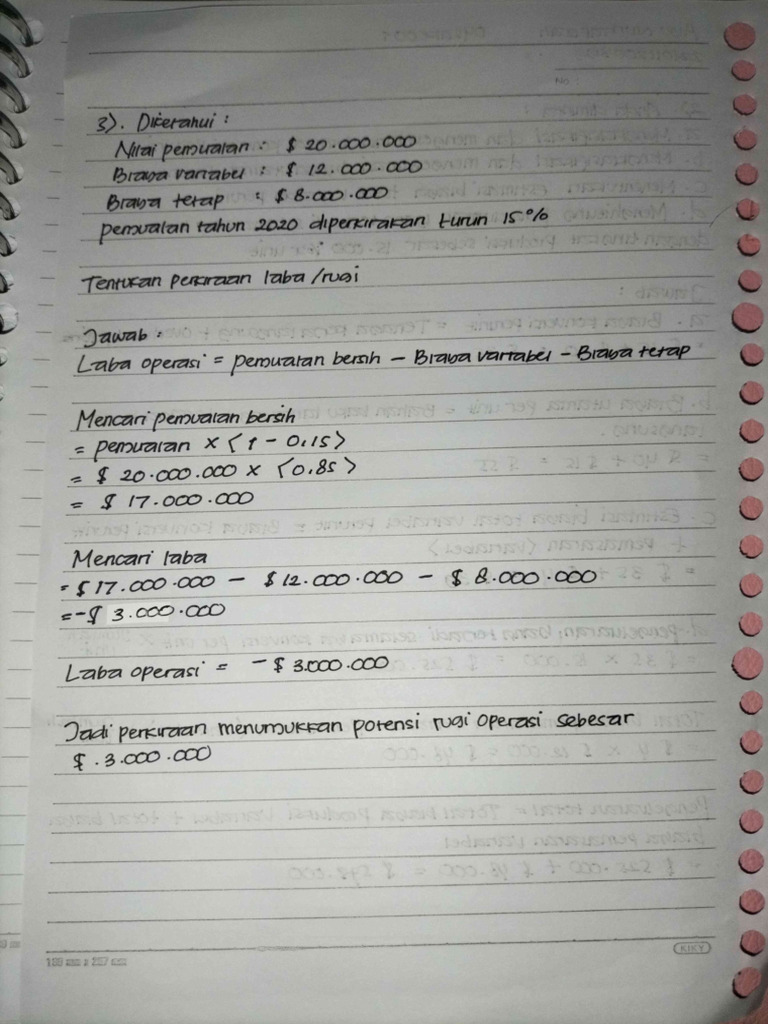 No :
3). Diketahui :
Nilai penjualan : $ 20.000.000
Biaya variabel : $ 12.000.000
Biaya tetap : $ 8.000.000
penjualan tahun 2020 diperkirakan turun 15%
Tentukan perkiraan laba/rugi
Jawab :
Laba operasi = penjualan bersih - Biaya variabel - Biaya tetap
Mencari penjualan bersih
= penjualan x (1 - 0,15)
= $ 20.000.000 x (0,85)
= $ 17.000.000
Mencari laba
= $ 17.000.000 - $ 12.000.000 - $ 8.000.000
= -$ 3.000.000
Laba operasi = - $ 3.000.000
Jadi perkiraan menunjukkan potensi rugi operasi sebesar
$ .3.000.000
KIKY